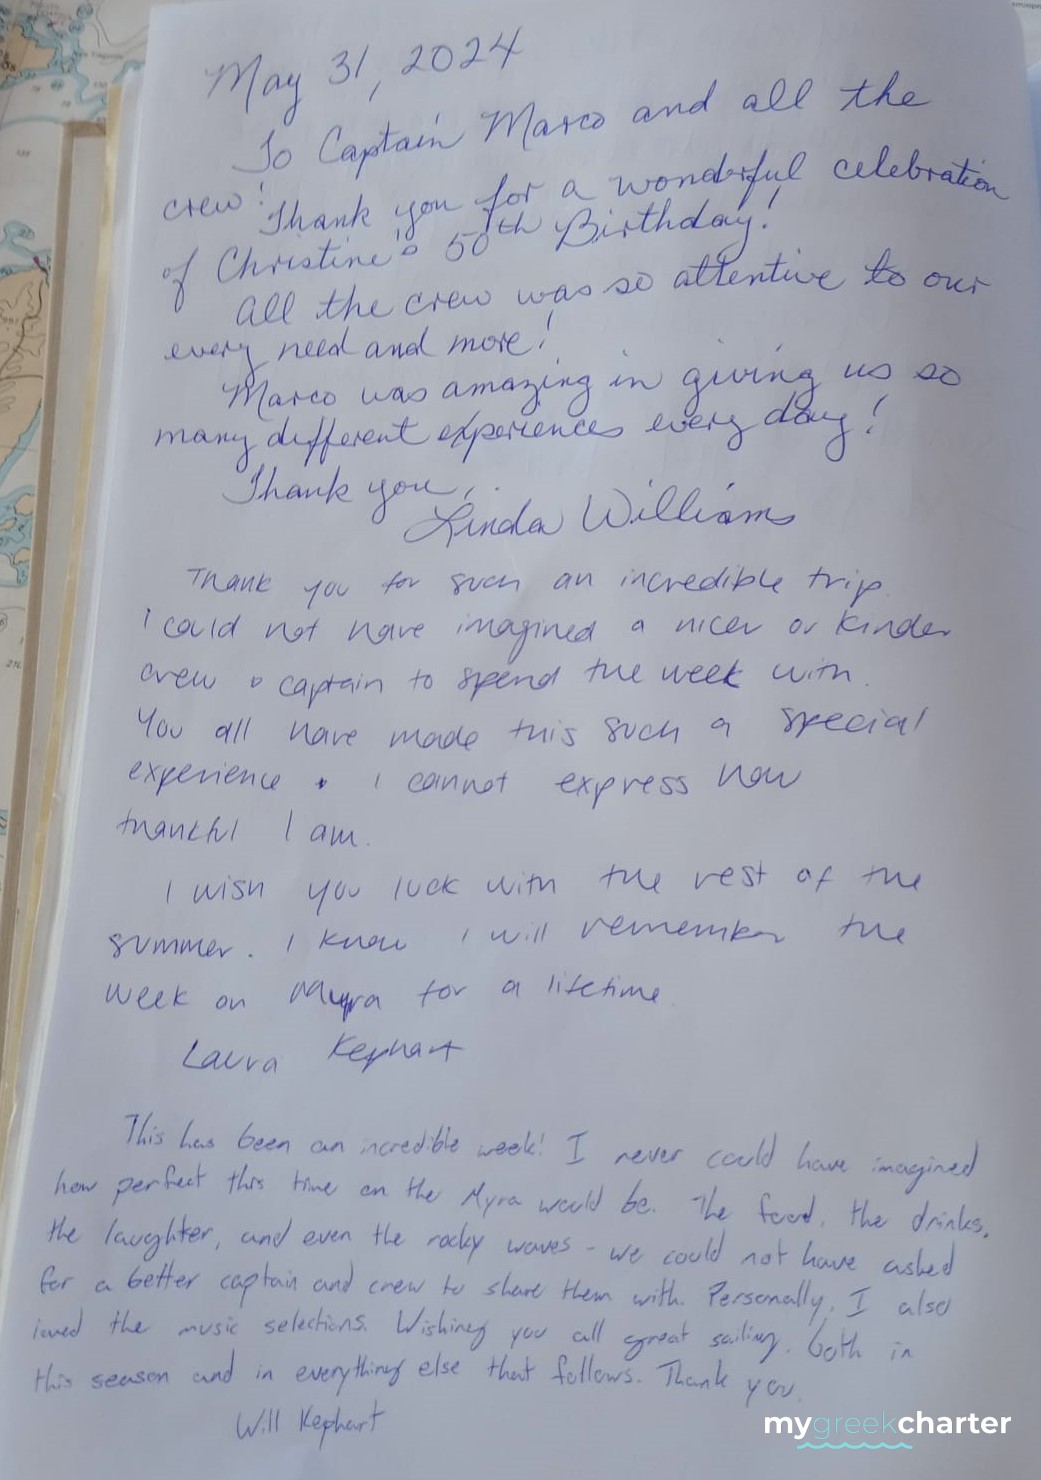 May 31, 2024
To Captain Marco and all the
crew!
Thank you for a wonderful celebration
of Christine's 50th Birthday!
All the crew was so attentive to our
every need and more!
Marco was amazing in giving us so
many different experiences every day!
Thank you,
Linda Williams
Thank you for such an incredible trip.
I could not have imagined a nicer or kinder
crew & captain to spend the week with.
You all have made this such a special
experience & I cannot express how
thankful I am.
I wish you luck with the rest of the
summer. I know I will remember the
week on Myra for a lifetime.
Laura Kephart
This has been an incredible week! I never could have imagined
how perfect this time on the Myra would be. The food, the drinks,
the laughter, and even the rocky waves - we could not have asked
for a better captain and crew to share them with. Personally, I also
loved the music selections. Wishing you all great sailing, both in
this season and in everything else that follows. Thank you.
Will Kephart
mygreekcharter